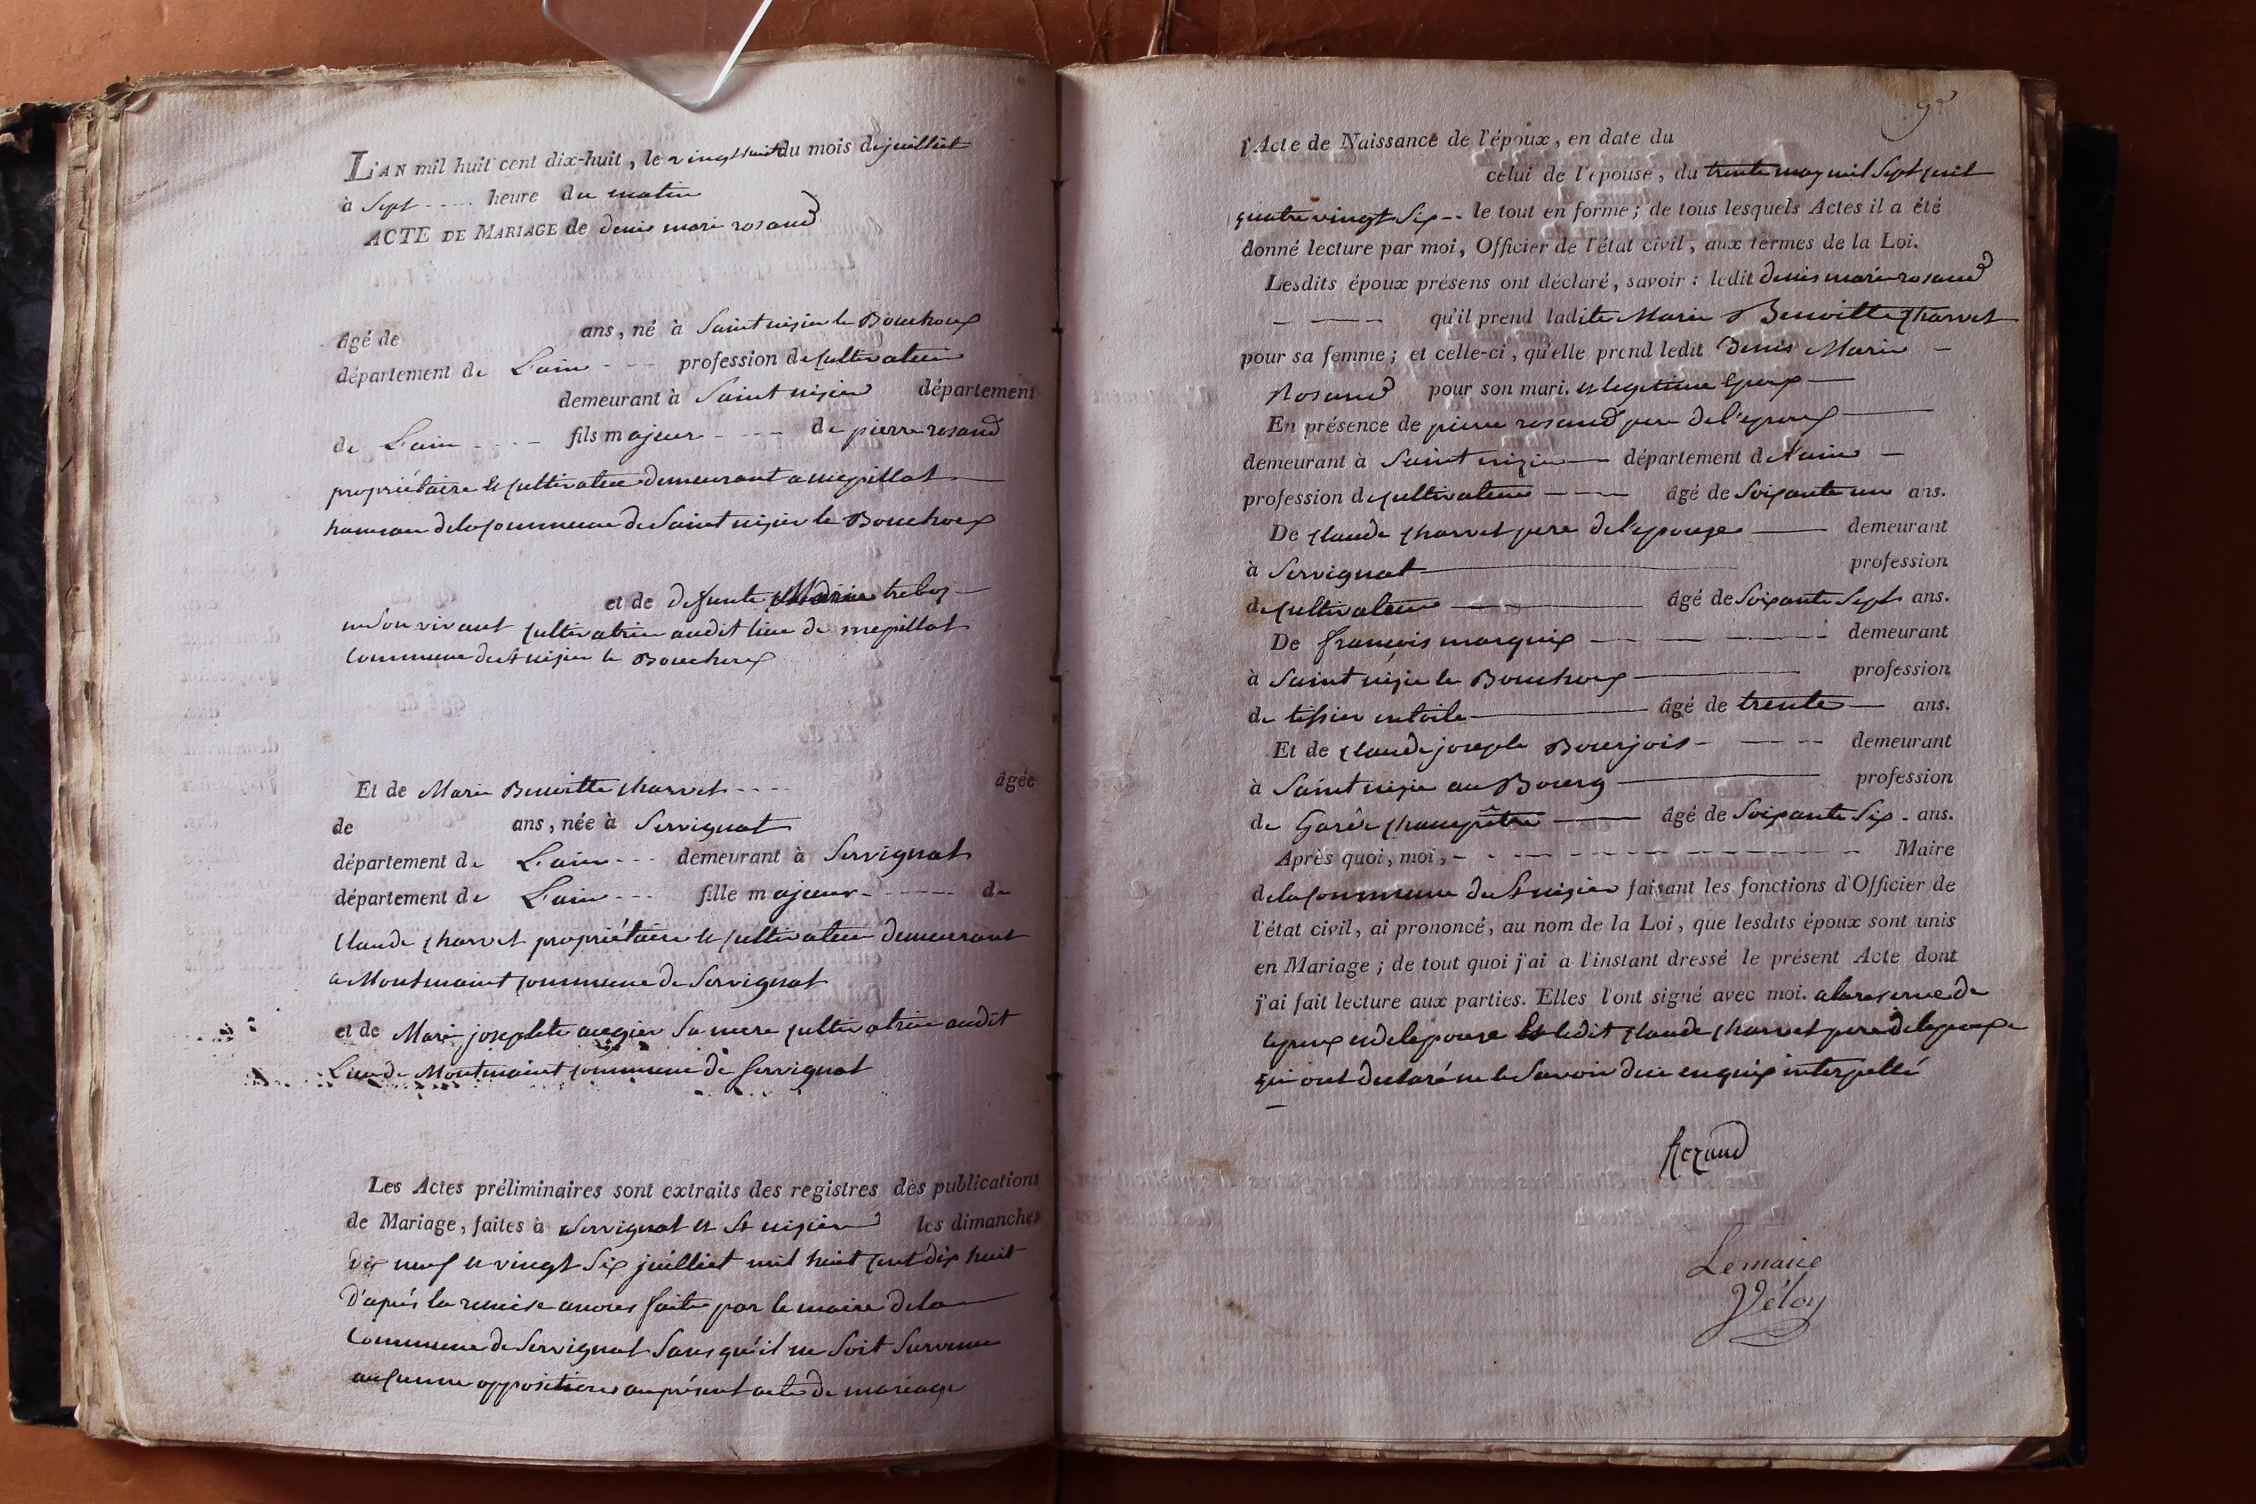 L'AN mil huit cent dix-huit, le vingt huit du mois de juilliet
à Sept heure du matin
ACTE DE MARIAGE de denis marie rosand
âgé de ans, né à Saint nizier le Bouchoux
département de L'ain profession de cultivateur
demeurant à Saint nizier département
de L'ain fils majeur de pierre rosand
propriétaire et cultivateur demeurant a mepillat
hameau de la commune de Saint nizier le Bouchoux
et de defunte Marie treboz
en son vivant cultivatrice audit lieu de mepillat
commune de St nizier le Bouchoux
Et de Marie Benoitte charvet âgée
de ans, née à Servignat
département de L'ain demeurant à Servignat
département de L'ain fille majeur de
Claude charvet propriétaire et cultivateur demeurant
a Montmaint commune de Servignat
et de Marie josephte augier Sa mere cultivatrice audit
Lieu de Montmaint commune de Servignat
Les Actes préliminaires sont extraits des registres des publications
de Mariage, faites à Servignat et St nizier les dimanches
dix neuf et vingt Six juilliet mil huit cent dix huit
D'aprés la remise a nous faite par le maire de la
Commune de Servignat Sans qu'il ne Soit Survenu
aucunne opposition au présent acte de mariage
l'Acte de Naissance de l'époux, en date du
celui de l'épouse, du trente may mil Sept cent
quatre vingt Six le tout en forme; de tous lesquels Actes il a été
donné lecture par moi, Officier de l'état civil, aux termes de la Loi.
Lesdits époux présens ont déclaré, savoir: ledit denis marie rosand
qu'il prend ladite Marie Benoitte charvet
pour sa femme; et celle-ci, qu'elle prend ledit Denis Marie
Rosand pour son mari. et legitime Epoux
En présence de pierre rosand pere de l'epoux
demeurant à Saint nizier département de l'ain
profession de cultivateur âgé de Soixante un ans.
De claude charvet pere de l'epouse demeurant
à Servignat profession
de cultivateur âgé de Soixante Sept ans.
De françois marquix demeurant
à Saint nizie le Bouchoux profession
de tissier en toile âgé de trente ans.
Et de claude joseph Bourjois demeurant
à Saint nizie au Bourg profession
de Garde champêtre âgé de Soixante Six ans.
Après quoi, moi, Maire
de la commune de St nizier faisant les fonctions d'Officier de
l'état civil, ai prononcé, au nom de la Loi, que lesdits époux sont unis
en Mariage; de tout quoi j'ai à l'instant dressé le présent Acte dont
j'ai fait lecture aux parties. Elles l'ont signé avec moi. a la reserve de
lepoux et de lepouse et ledit claude charvet pere de lepouse
qui ont declaré ne le Savoir de ce enquix interpellé
Rezand
Le maire
Véloy